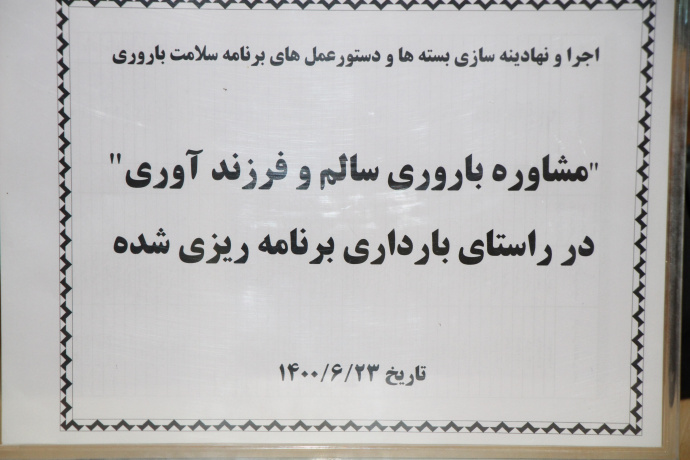 اجرا و نهادینه سازی بسته ها و دستورعمل های برنامه سلامت باروری
"مشاوره باروری سالم و فرزند آوری"
در راستای بارداری برنامه ریزی شده
تاریخ ۱۴۰۰/۶/۲۳